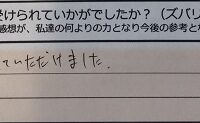 受けられていかがでしたか？（ズバリ
感想が、私達の何よりの力となり今後の参考とな
ていただけました。